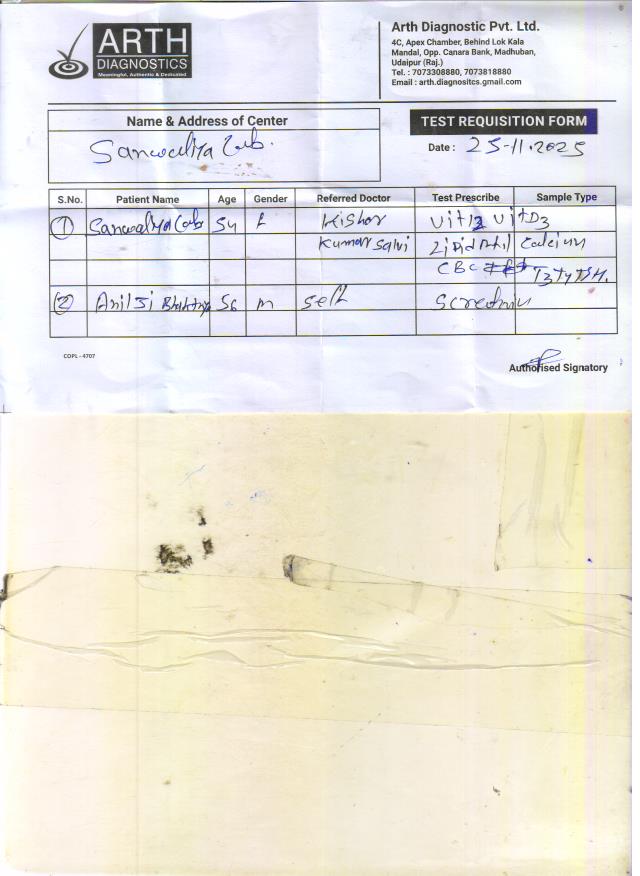 ARTH
DIAGNOSTICS
Meaningful, Authentic & Dedicated
Arth Diagnostic Pvt. Ltd.
4C, Apex Chamber, Behind Lok Kala
Mandal, Opp. Canara Bank, Madhuban,
Udaipur (Raj.)
Tel. : 7073308880, 7073818880
Email : arth.diagnositcs.gmail.com
Name & Address of Center
Sanwaliya Lab.
TEST REQUISITION FORM
Date : 25-11-2025
S.No. Patient Name Age Gender Referred Doctor Test Prescribe Sample Type
1 Sanwaliya Lab 54 f Kishor Vit12 VitD3
Kumar Salvi Lipid Calcium
CBC T3 T4 TSH.
2 Anil Ji 56 m Self
COPL - 4707
Authorised Signatory